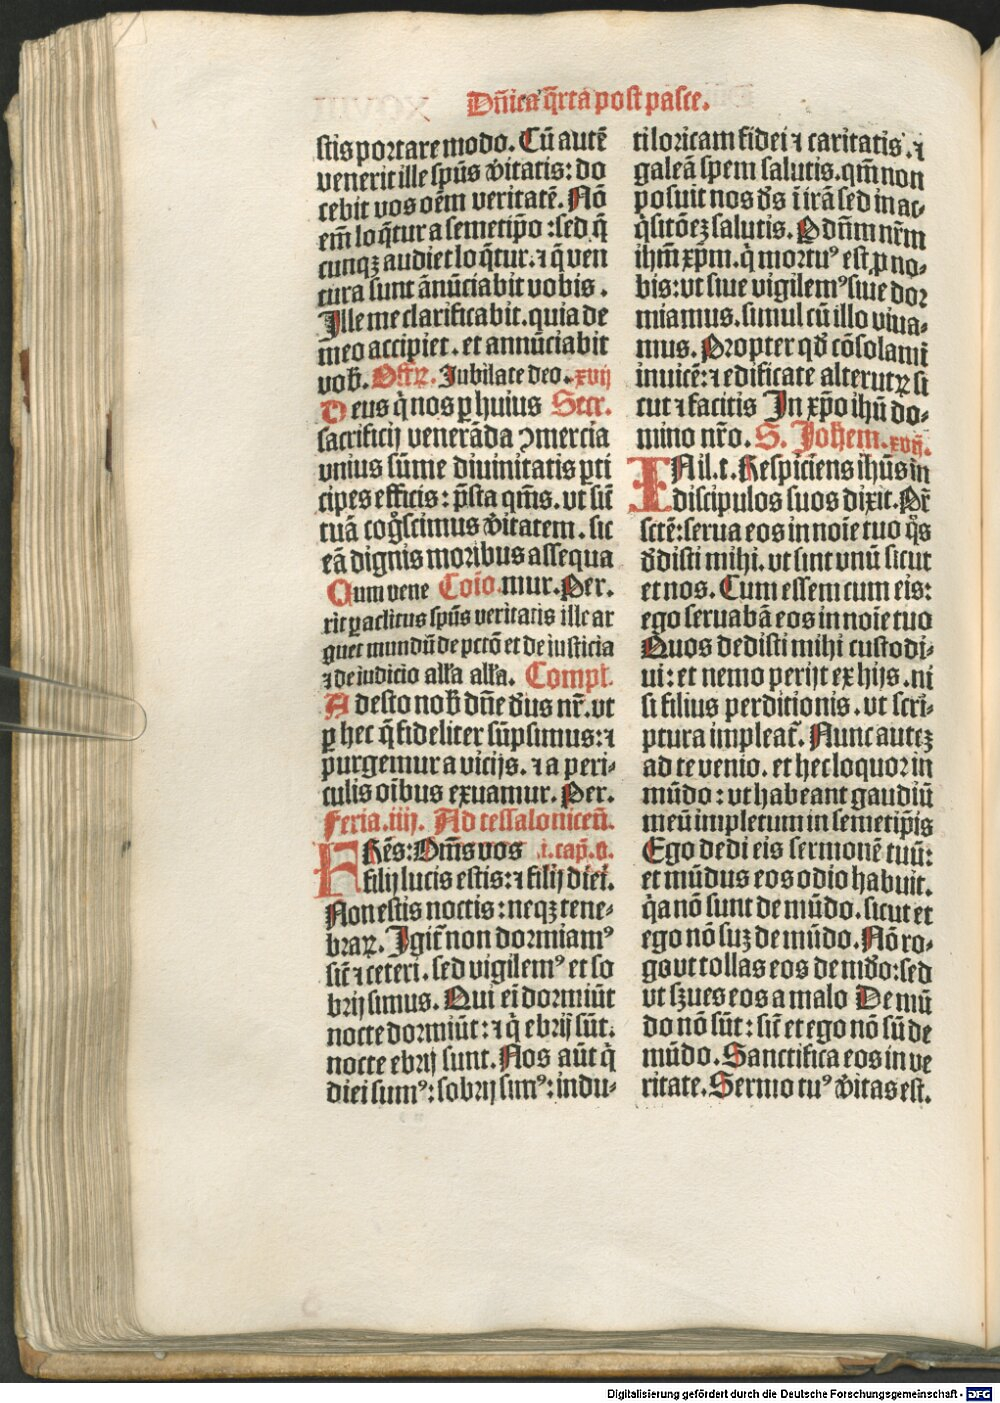 Dn̄ica q̄rta post pasce.
stis portare modo. Cū autē
venerit ille spūs v̄itatis: do
cebit vos oēm veritatē. Nō
em̄ loq̄tur a semetip̄o : sed q̄
cunqꝫ audiet loq̄tur. ⁊ q̄ ven
tura sunt ānūciabit vobis .
Ille me clarificabit. quia de
meo accipiet. et annūciabit
vob̄. Offꝝ. Jubilate deo. xvij
Deus q̄ nos ꝑ huius Secr.
sacrificij venerāda ꝯmercia
vnius sūme diuinitatis ꝑti
cipes efficis: p̄sta qm̄s. vt sic̄
tuā cog̊scimus v̄itatem. sic
eā dignis moribus assequa
Qum vene Cōio. mur. Per.
rit paraclitus spūs veritatis ille ar
guet mundū de pctō et de iusticia
⁊ de iudicio all̄a all̄a. Compl.
Adesto nob̄ dn̄e d̄us nr̄. vt
ꝑ hec q̄ fideliter sūpsimus: ⁊
purgemur a vicijs. ⁊ a peri⸗
culis oībus exuamur. Per.
Feria. iiij. Ad tessalonicen̄.
FRēs: Om̄s vos .i. cap̄. v.
filij lucis estis: ⁊ filij diei.
Non estis noctis: neqꝫ tene⸗
braꝝ. Igit̄ non dormiamꝰ
sic̄ ⁊ ceteri. sed vigilemꝰ et so
brij simus. Qui eī dormiūt
nocte dormiūt: ⁊ q̄ ebrij sūt.
nocte ebrij sunt. Nos aūt q̄
diei sumꝰ: sobrij simꝰ: indu⸗
ti loricam fidei ⁊ caritatis. ⁊
galeā spem salutis. qm̄ non
posuit nos d̄s ī irā sed in ac⸗
q̄sitōeꝫ salutis. P dn̄m nr̄m
ihm̄ xp̄m. q̄ mortuꝰ est ꝓ no⸗
bis: vt siue vigilemꝰ siue dor
miamus. simul cū illo viua⸗
mus. Propter qd̄ cōsolamī
inuicē: ⁊ edificate alterutꝝ si
cut ⁊ facitis In xp̄o ihū do⸗
mino nr̄o. S. Joh̄em. xvij.
IN il. t. Respiciens ihūs in
discipulos suos dixit. Pr̄
sctē: serua eos in noīe tuo q̊s
d̄disti mihi. vt sint vnū sicut
et nos. Cum essem cum eis:
ego seruabā eos in noīe tuo
Quos dedisti mihi custodi⸗
ui: et nemo perijt ex hijs. ni
si filius perditionis. vt scri⸗
ptura impleat̄. Nunc auteꝫ
ad te venio. et hec loquor in
mūdo: vt habeant gaudiū
meū impletum in semetip̄is
Ego dedi eis sermonē tuū:
et mūdus eos odio habuit.
q̄a nō sunt de mūdo. sicut et
ego nō suꝫ de mūdo. Nō ro⸗
go vt tollas eos de mūdo: sed
vt sꝫues eos a malo De mū
do nō sūt: sic̄ et ego nō sū de
mūdo. Sanctifica eos in ve
ritate. Sermo tuꝰ v̄itas est.
Digitalisierung gefördert durch die Deutsche Forschungsgemeinschaft - DFG